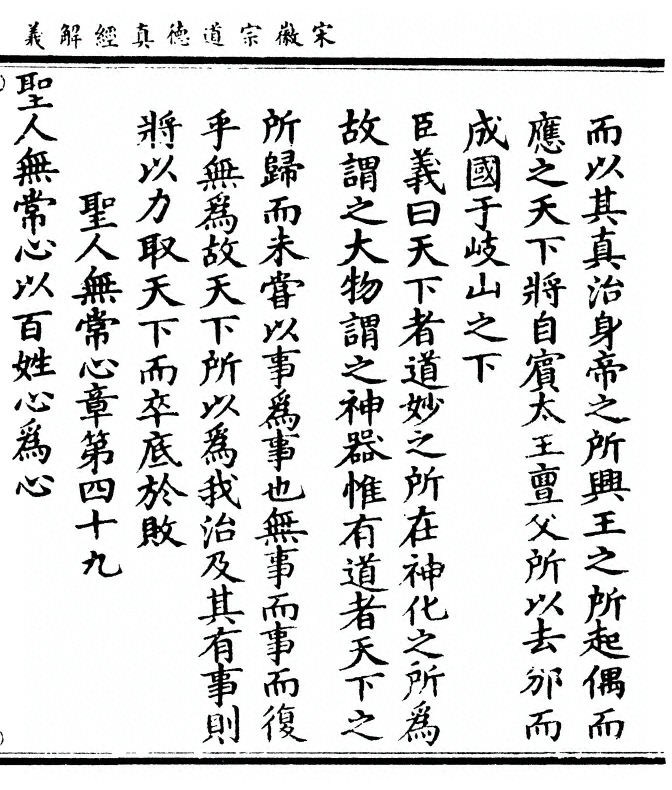 宋徽宗道德真經解義
而以其真治身帝之所興王之所起偶而
應之天下將自賓太王亶父所以去邠而
成國于岐山之下
臣義曰天下者道妙之所在神化之所爲
故謂之大物謂之神器惟有道者天下之
所歸而未嘗以事爲事也無事而事而復
乎無爲故天下所以爲我治及其有事則
將以力取天下而卒底於敗
聖人無常心章第四十九
聖人無常心以百姓心爲心